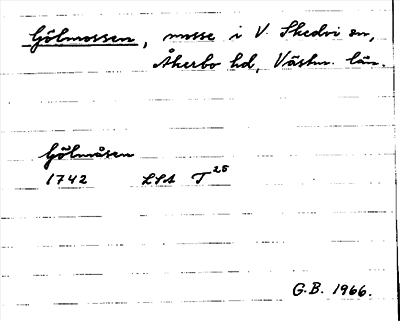 Gölmossen, mosse i V. Skedvi sn,
Åkerbo hd, Västm. län.
Gölmåsen
1742 LSA T25
G.B. 1966.